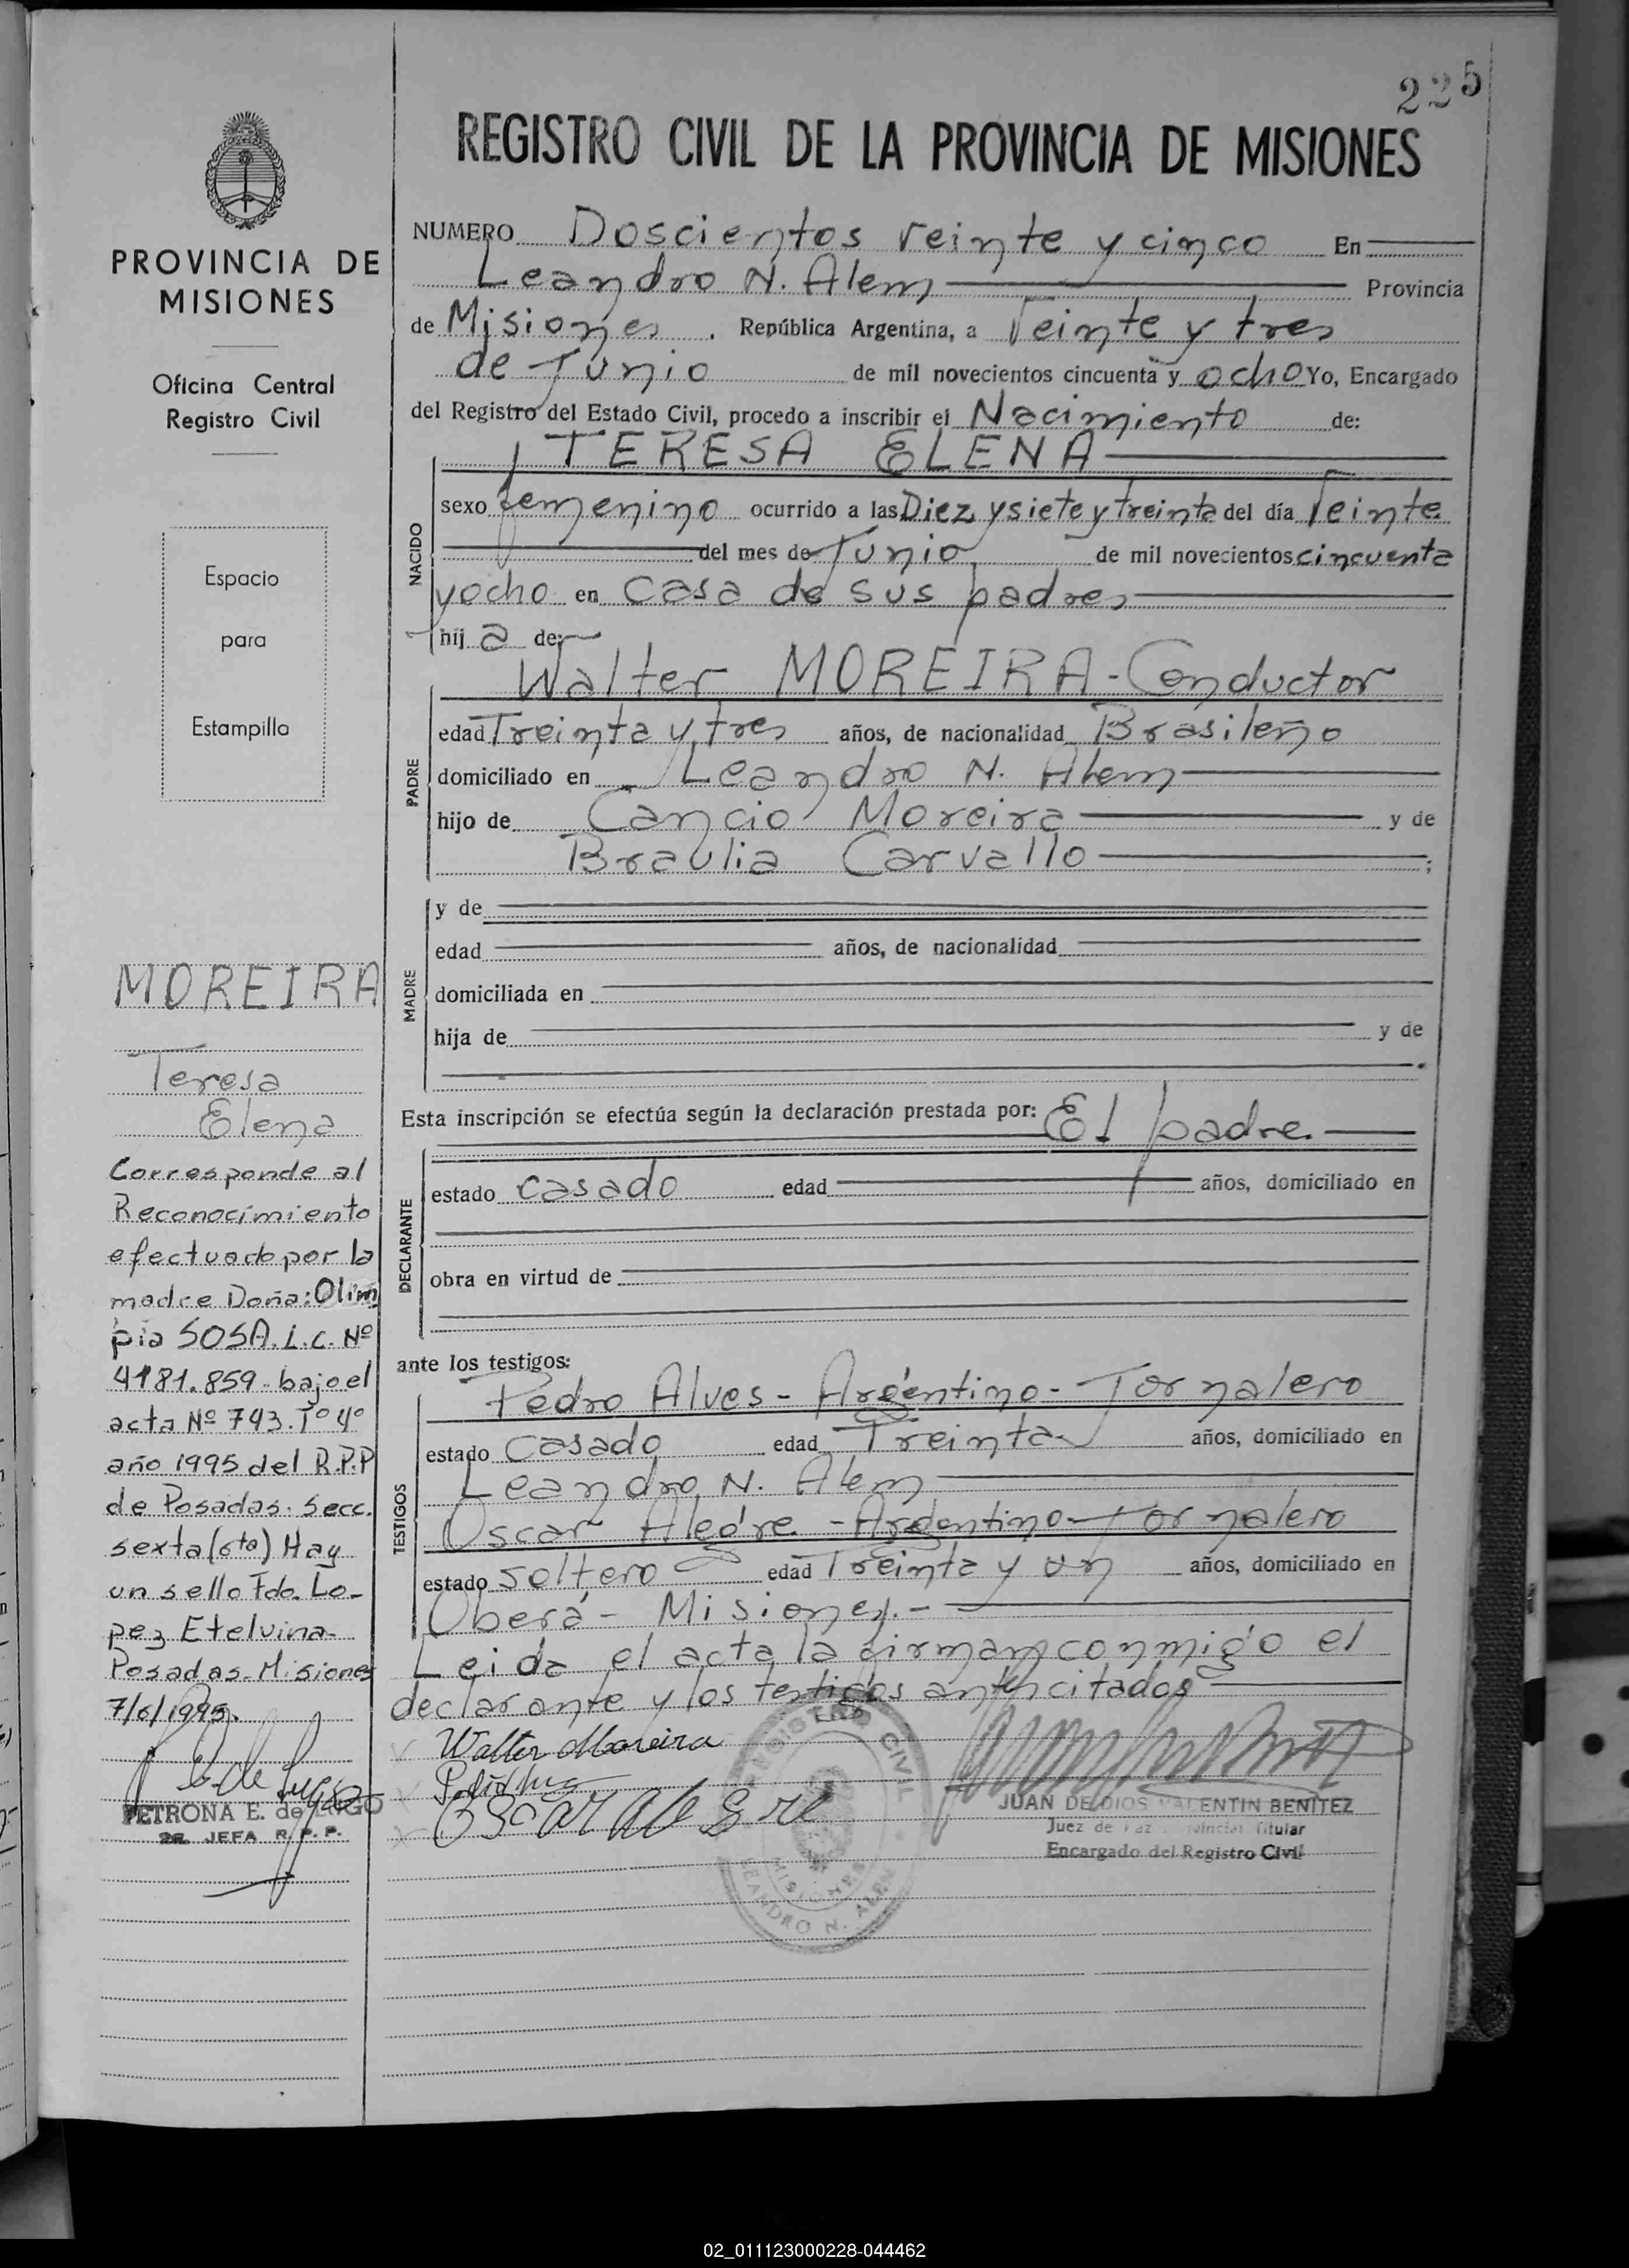 225
REGISTRO CIVIL DE LA PROVINCIA DE MISIONES
PROVINCIA DE
MISIONES
Oficina Central
Registro Civil
Espacio
para
Estampilla
MOREIRA
Teresa
Elena
Corresponde al
Reconocimiento
efectuado por la
madre Doña: Olim
pia SOSA. L.C. Nº
4181.859 - bajo el
acta Nº 743. Tº 4º
año 1995 del R.P.P
de Posadas. Secc.
sexta (6ta) Hay
un sello Fdo. Lo-
pez Etelvina-
Posadas-Misiones
7/6/1995.
PETRONA E. de LUGO
2a. JEFA R.P.P.
NUMERO Doscientos veinte y cinco En
Leandro N. Alem Provincia
de Misiones , República Argentina, a Veinte y tres
de Junio de mil novecientos cincuenta y ocho Yo, Encargado
del Registro del Estado Civil, procedo a inscribir el Nacimiento de:
TERESA ELENA
NACIDO
sexo femenino ocurrido a las Diez y siete y treinta del día Veinte
del mes de Junio de mil novecientos cincuenta
y ocho en Casa de sus padres
hij a de:
Walter MOREIRA - Conductor
PADRE
edad Treinta y tres años, de nacionalidad Brasileño
domiciliado en Leandro N. Alem
hijo de Cancio Moreira y de
Braulia Carvallo ;
MADRE
y de
edad años, de nacionalidad
domiciliada en
hija de y de
Esta inscripción se efectúa según la declaración prestada por: El padre
DECLARANTE
estado casado edad años, domiciliado en
obra en virtud de
ante los testigos:
TESTIGOS
Pedro Alves - Argentino - Jornalero
estado Casado edad Treinta años, domiciliado en
Leandro N. Alem
Oscar Alegre - Argentino - Jornalero
estado soltero edad Treinta y un años, domiciliado en
Oberá - Misiones.-
Leida el acta la firman conmigo el
declarante y los testigos antescitados
Walter Moreira
Oscar Alegre
REGISTRO CIVIL
MISIONES
LEANDRO N. ALEM
JUAN DE DIOS VALENTIN BENITEZ
Juez de Paz Provincial Titular
Encargado del Registro Civil
02_011123000228-044462